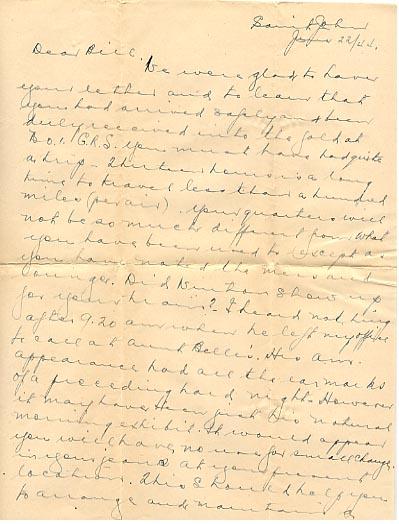 Saint John
June 22/44.
Dear Bill.
We were glad to have
your letter and to learn that
you had arrived safely and been
duly received into the fold at
No. 1. G.R.S. You must have had quite
a trip - thirteen hours is a long
time to travel less than a hundred
miles (per air). Your quarters will
not be so much different from what
you have been used to (except as
you have noted the mess and
lounge. Did Burton show up
for your train? - I heard nothing
after 9.20 am when he left my office
to call at Aunt Belle's. His a.m.
appearance had all the earmarks
of a preceding hard night. However
it may have been just his natural
morning exhibit. It would appear
you will have no use for small change
in your jeans at your present
location. This should help you
to arrange and maintain a